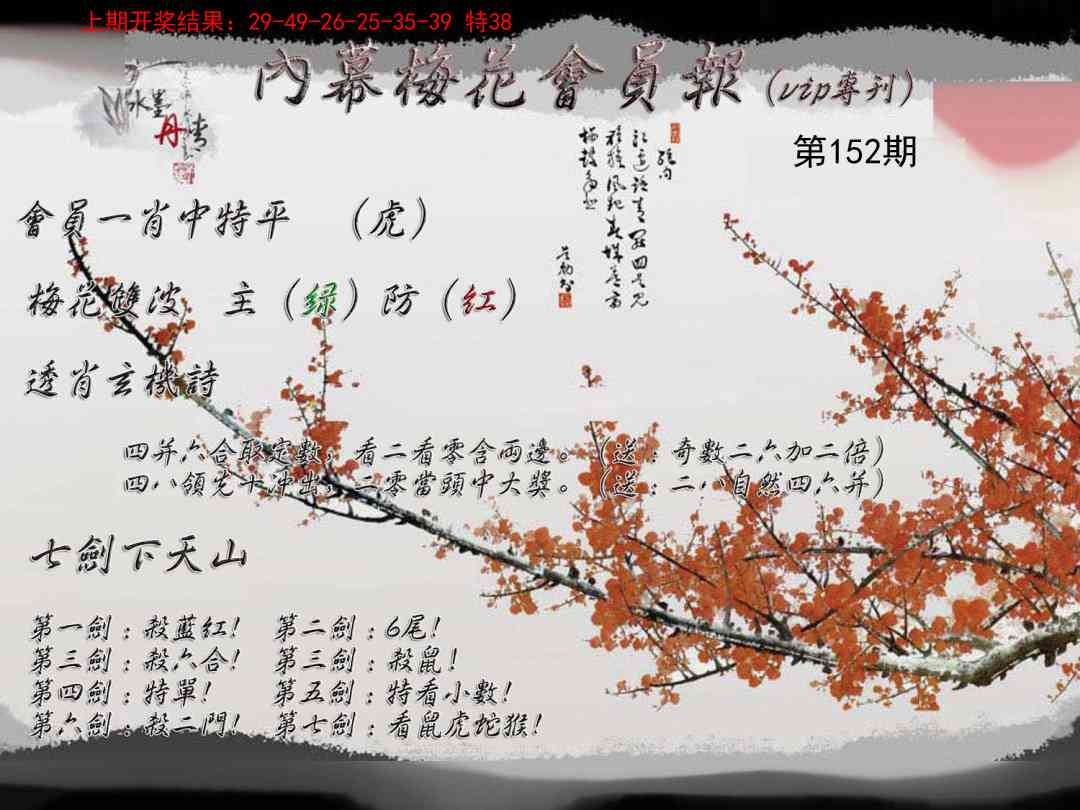 上期开奖结果：29-49-26-25-35-39 特38
內幕梅花會員報（vip專刊）
水墨
丹青
第152期
會員一肖中特平 （虎）
梅花雙波 主（绿）防（红）
透肖玄機詩
四并六合取定數，看二看零含両邊。（送：奇數二六加二倍）
四八領先十沖出，二零當頭中大獎。（送：二八自然四六并）
七劍下天山
第一劍：殺藍紅! 第二劍：6尾!
第三劍：殺六合! 第三劍：殺鼠!
第四劍：特單! 第五劍：特看小數!
第六劍：殺二門! 第七劍：看鼠虎蛇猴!